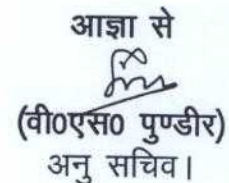 आज्ञा से
(वी0एस0 पुण्डीर)
अनु सचिव।